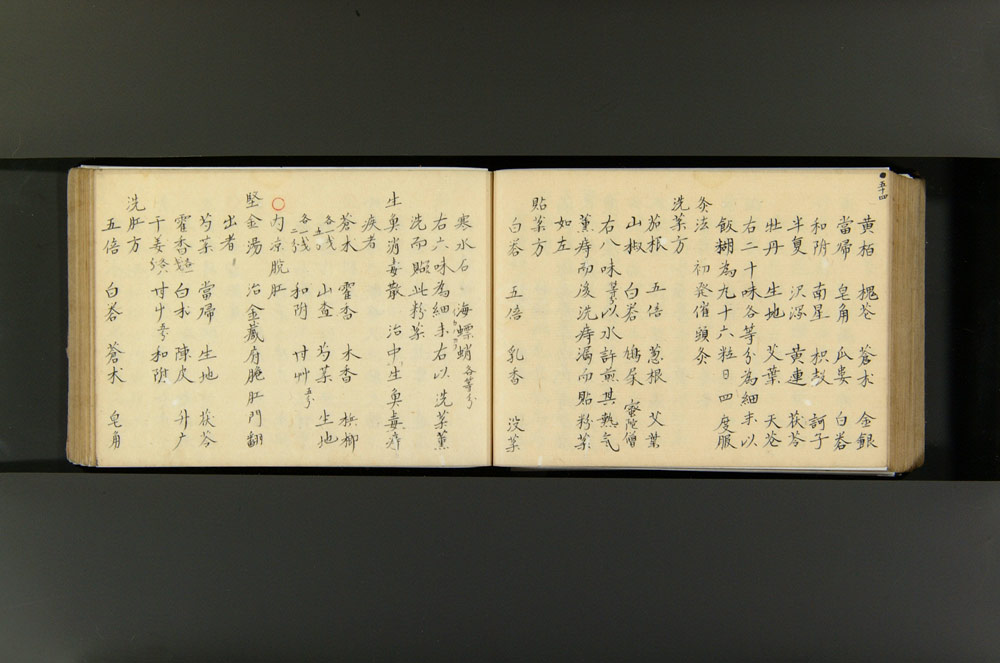 五十四
黄栢 槐花 蒼朮 金銀
當歸 皂角 瓜蔞 白芷
和附 南星 枳殻 訶子
半夏 沢瀉 黄連 茯苓
牡丹 生地 艾葉 天花
右二十味各等分為細末以
飯糊為九十六粒日四度服
灸法 初発催頭灸
洗薬方
茄根 五倍 葱根 艾葉
山椒 白芷 鳩屎 蜜陀僧
右八味等分以水許煎其熱気
薫痔而後洗痔瀉而貼粉薬
如左
貼薬方
白芷 五倍 乳香 没薬
寒水石 海螵蛸各等分
右六味為細末右以洗薬薫
洗而貼此粉薬
生臭消毒散 治中生臭毒痔
疾者
蒼朮 霍香 木香 梹榔
山査 芍薬 生地
和附 甘艸
内京腕肛
堅金湯 治金蔵府脆肛門翻
出者
芍薬 當歸 生地 茯苓
霍香 白朮 陳皮 升广
干姜 甘艸 和附
洗肛方
五倍 白芷 蒼朮 皂角